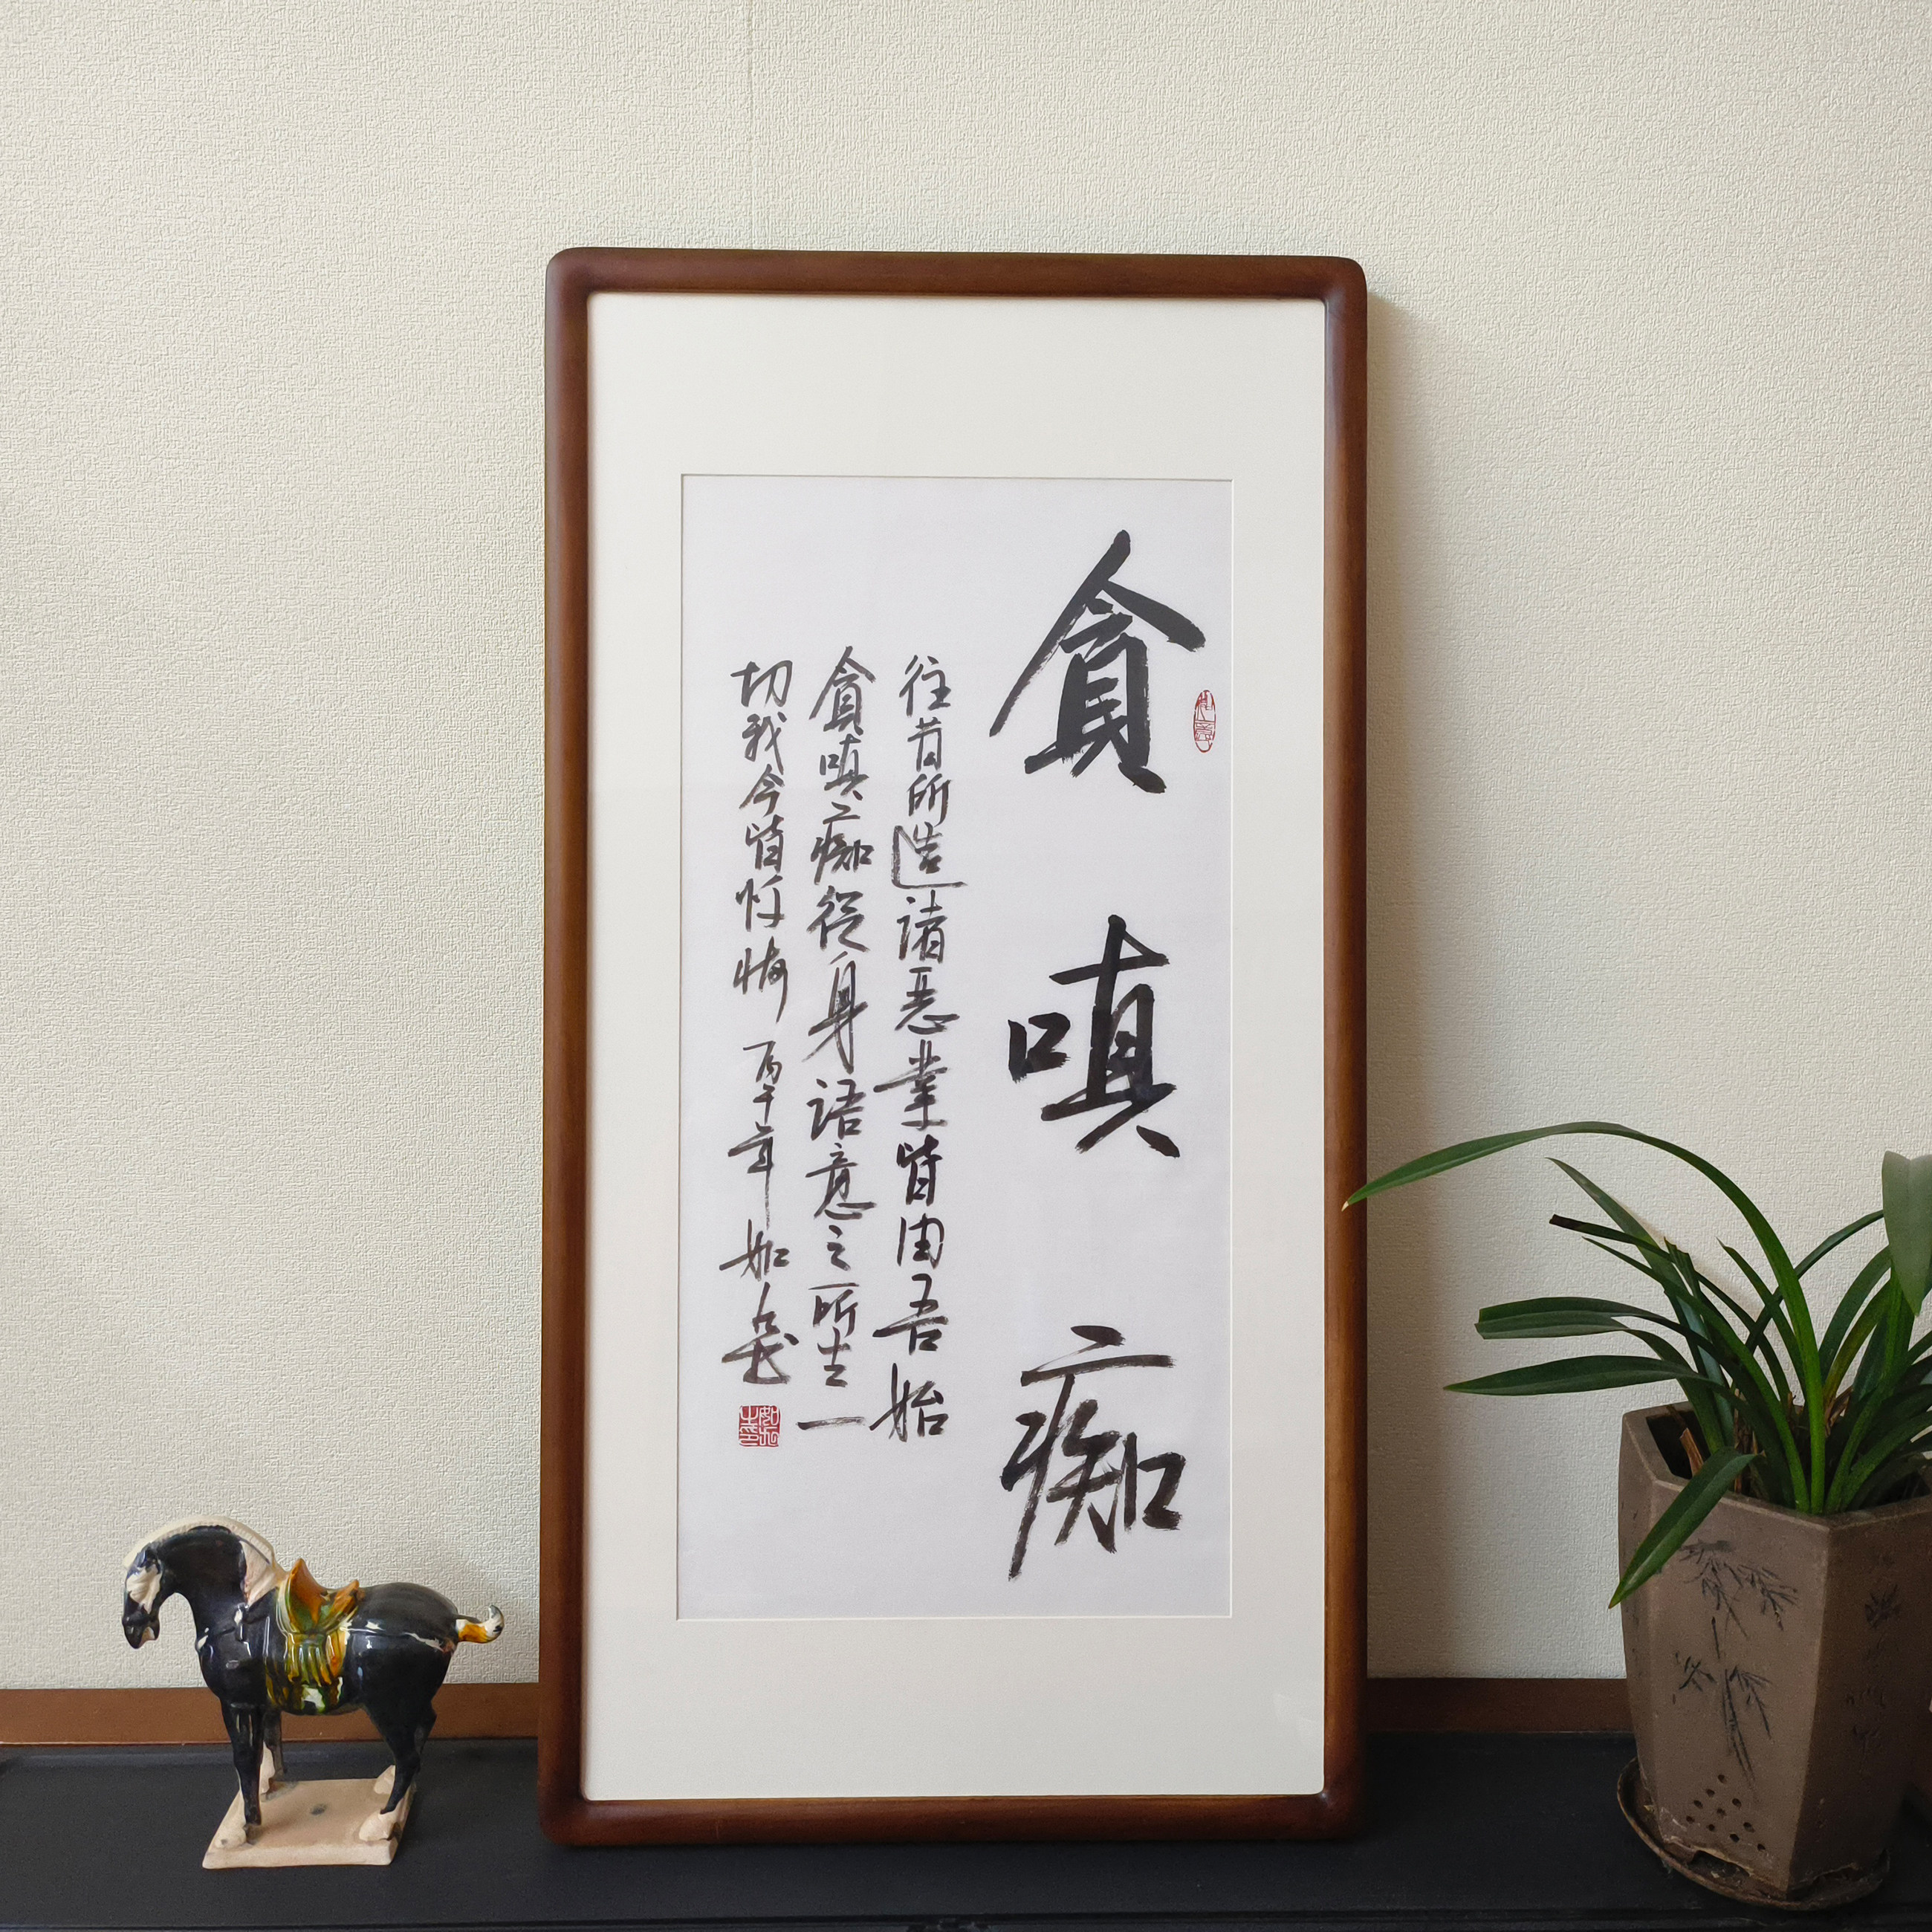 貪
嗔
痴
往昔所造诸恶業皆由吾始
貪嗔痴從身语意之所生一
切我今皆忏悔 丙午年 如